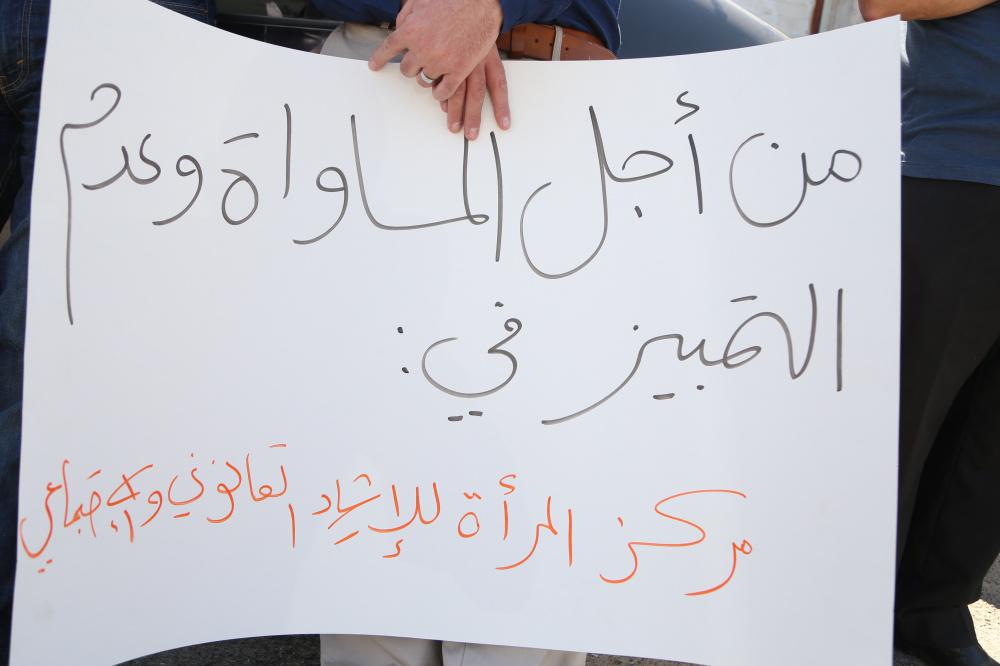 من أجل المساواة وعدم
التمييز في :
مركز المرأة للإرشاد القانوني والإجتماعي